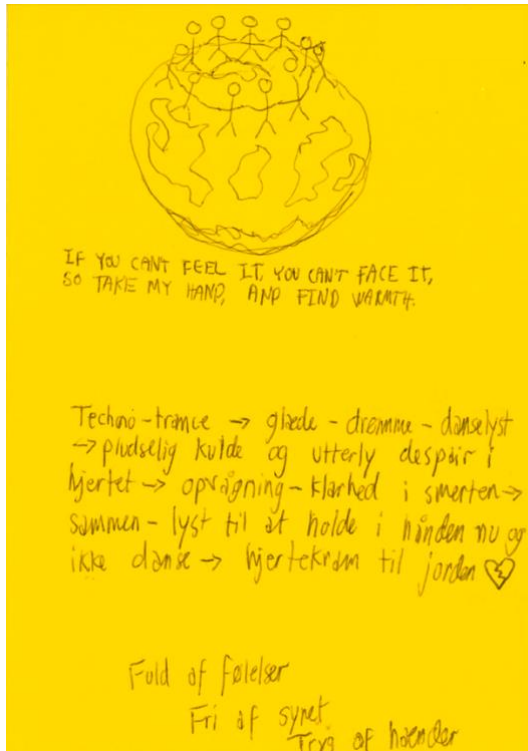 IF YOU CANT FEEL IT, YOU CAN'T FACE IT,
SO TAKE MY HAND, AND FIND WARMTH.
Techno-trance → glæde - drømme - danselyst
→ pludselig kulde og utterly despair i
hjertet → opvågning - klarhed i smerten →
sammen - lyst til at holde i hånden nu og
ikke danse → hjertekram til jorden
Fuld af følelser
Fri af synet
Tryg af hænder